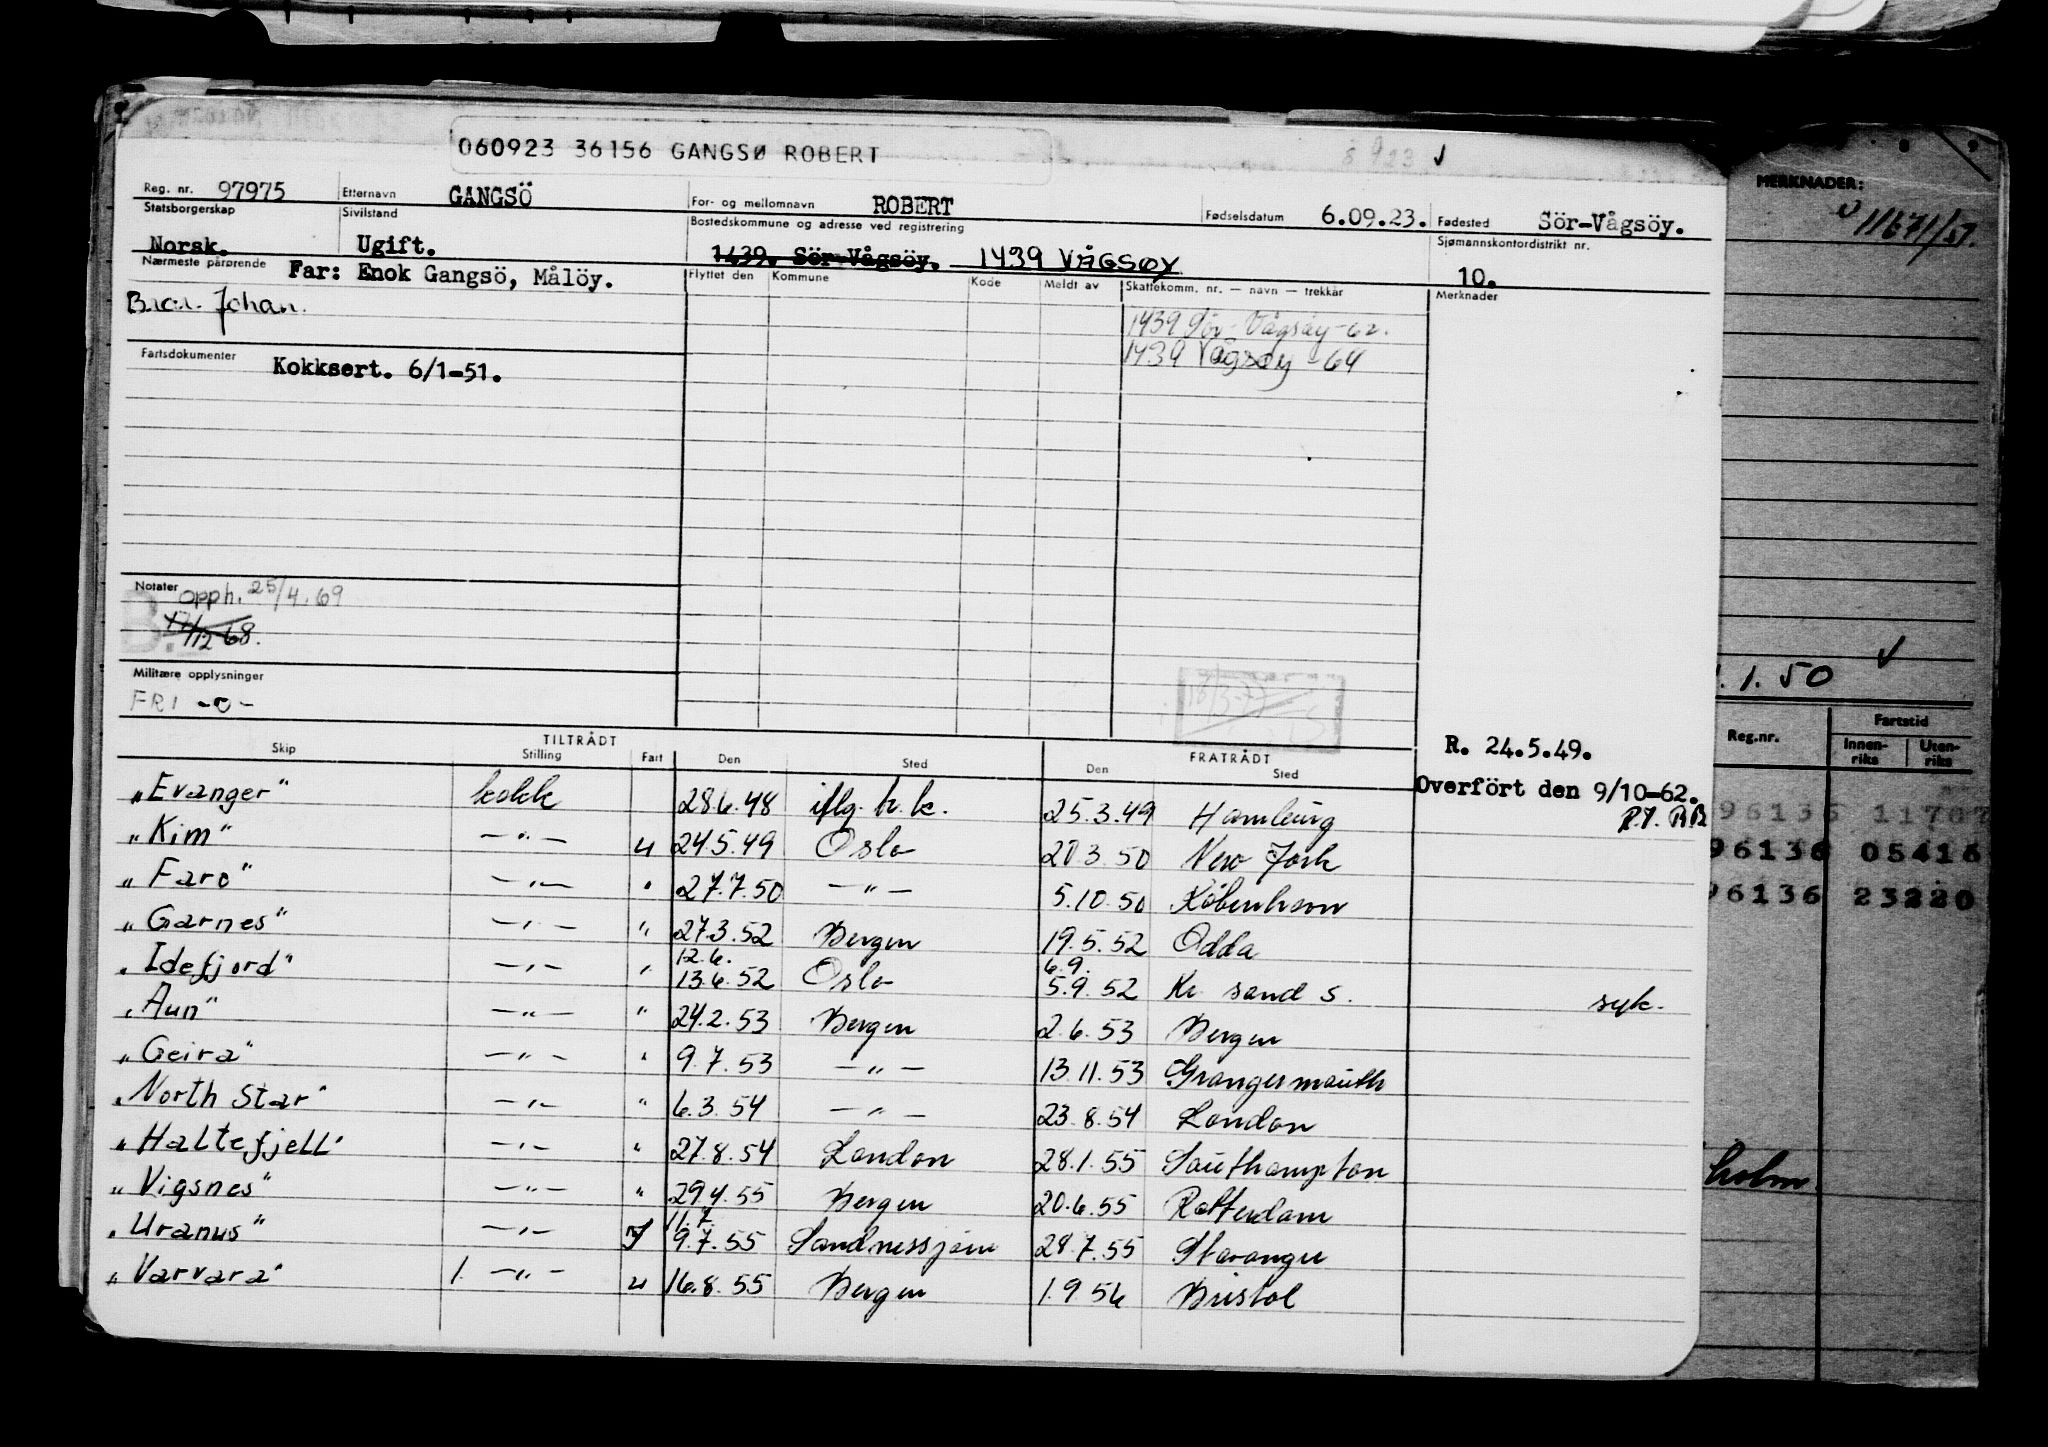 060923 36156 GANGSØ ROBERT
Reg. nr. 97975 Etternavn GANGSÖ For- og mellomnavn ROBERT Fødselsdatum 6.09.23. Fødested Sör-Vågsöy.
Statsborgerskap Norsk. Sivilstand Ugift. Bostedskommune og adresse ved registrering 1439. Sör-Vågsöy. 1439 VÅGSØY Sjømannskontordistrikt nr. 10.
Nærmeste pårørende Far: Enok Gangsö, Målöy. Flyttet den Kommune Kode Meldt av Skattekomm. nr. — navn — trekkår Merknader
Johan.
1439 Sör-Vågsøy-62.
1439 Vågsøy-64
Fartsdokumenter Kokksert. 6/1-51.
Notater opph. 25/4.69
17/12 68.
Militære opplysninger
FRI -0-
R. 24.5.49.
Overført den 9/10-62.
TILTRÅDT FRATRÅDT
Skip Stilling Fart Den Sted Den Sted
"Evanger" kokk 28.6.48 iflg. h.k. 25.3.49 Hamburg
"Kim" —"— u 24.5.49 Oslo 20 3.50 New York
"Faro" —"— " 27.7.50 —"— 5.10.50 Köbenhavn
"Garnes" —"— " 27.3.52 Bergen 19.5.52 Odda
12.6. 6.9.
"Idefjord" —"— " 13.6.52 Oslo 5.9.52 Kr. sand S. syk.
"Aun" —"— " 24.2.53 Bergen 2.6.53 Bergen
"Geira" —"— " 9.7.53 —"— 13.11.53 Grangermouth
"North Star" —"— " 6.3.54 —"— 23.8.54 London
"Haltefjell" —"— " 27.8.54 London 28.1.55 Southampton
"Vigsnes" —"— " 29.4.55 Bergen 20.6.55 Rotterdam
11.7.
"Uranus" —"— 9.7.55 Sandnessjøen 28.7.55 Stavanger
"Varvara" 1. —"— u 16.8.55 Bergen 1.9 56 Bristol
MERKNADER:
11671/51.
.1.50
Reg.nr. Fartstid
Innen-riks Uten-riks
96136 11707
96136 05416
96136 23220
holm.